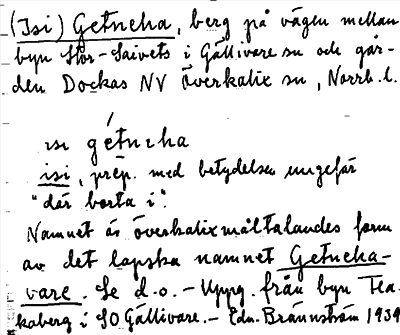 (Isi) Getncha, berg på vägen mellan
byn Stor-Saivets i Gällivare sn och går-
den Dockas NV Överkalix sn, Norrb. l.
ısı getnɛha
isi, prep. med betydelsen ungefär
"där borta i".
Namnet är överkalixmåltalandes form
av det lapska namnet Getncha-
vare. Se d.o. – Uppg. från byn Tea-
kaberg i SO Gällivare. – Edv. Brännström 1939